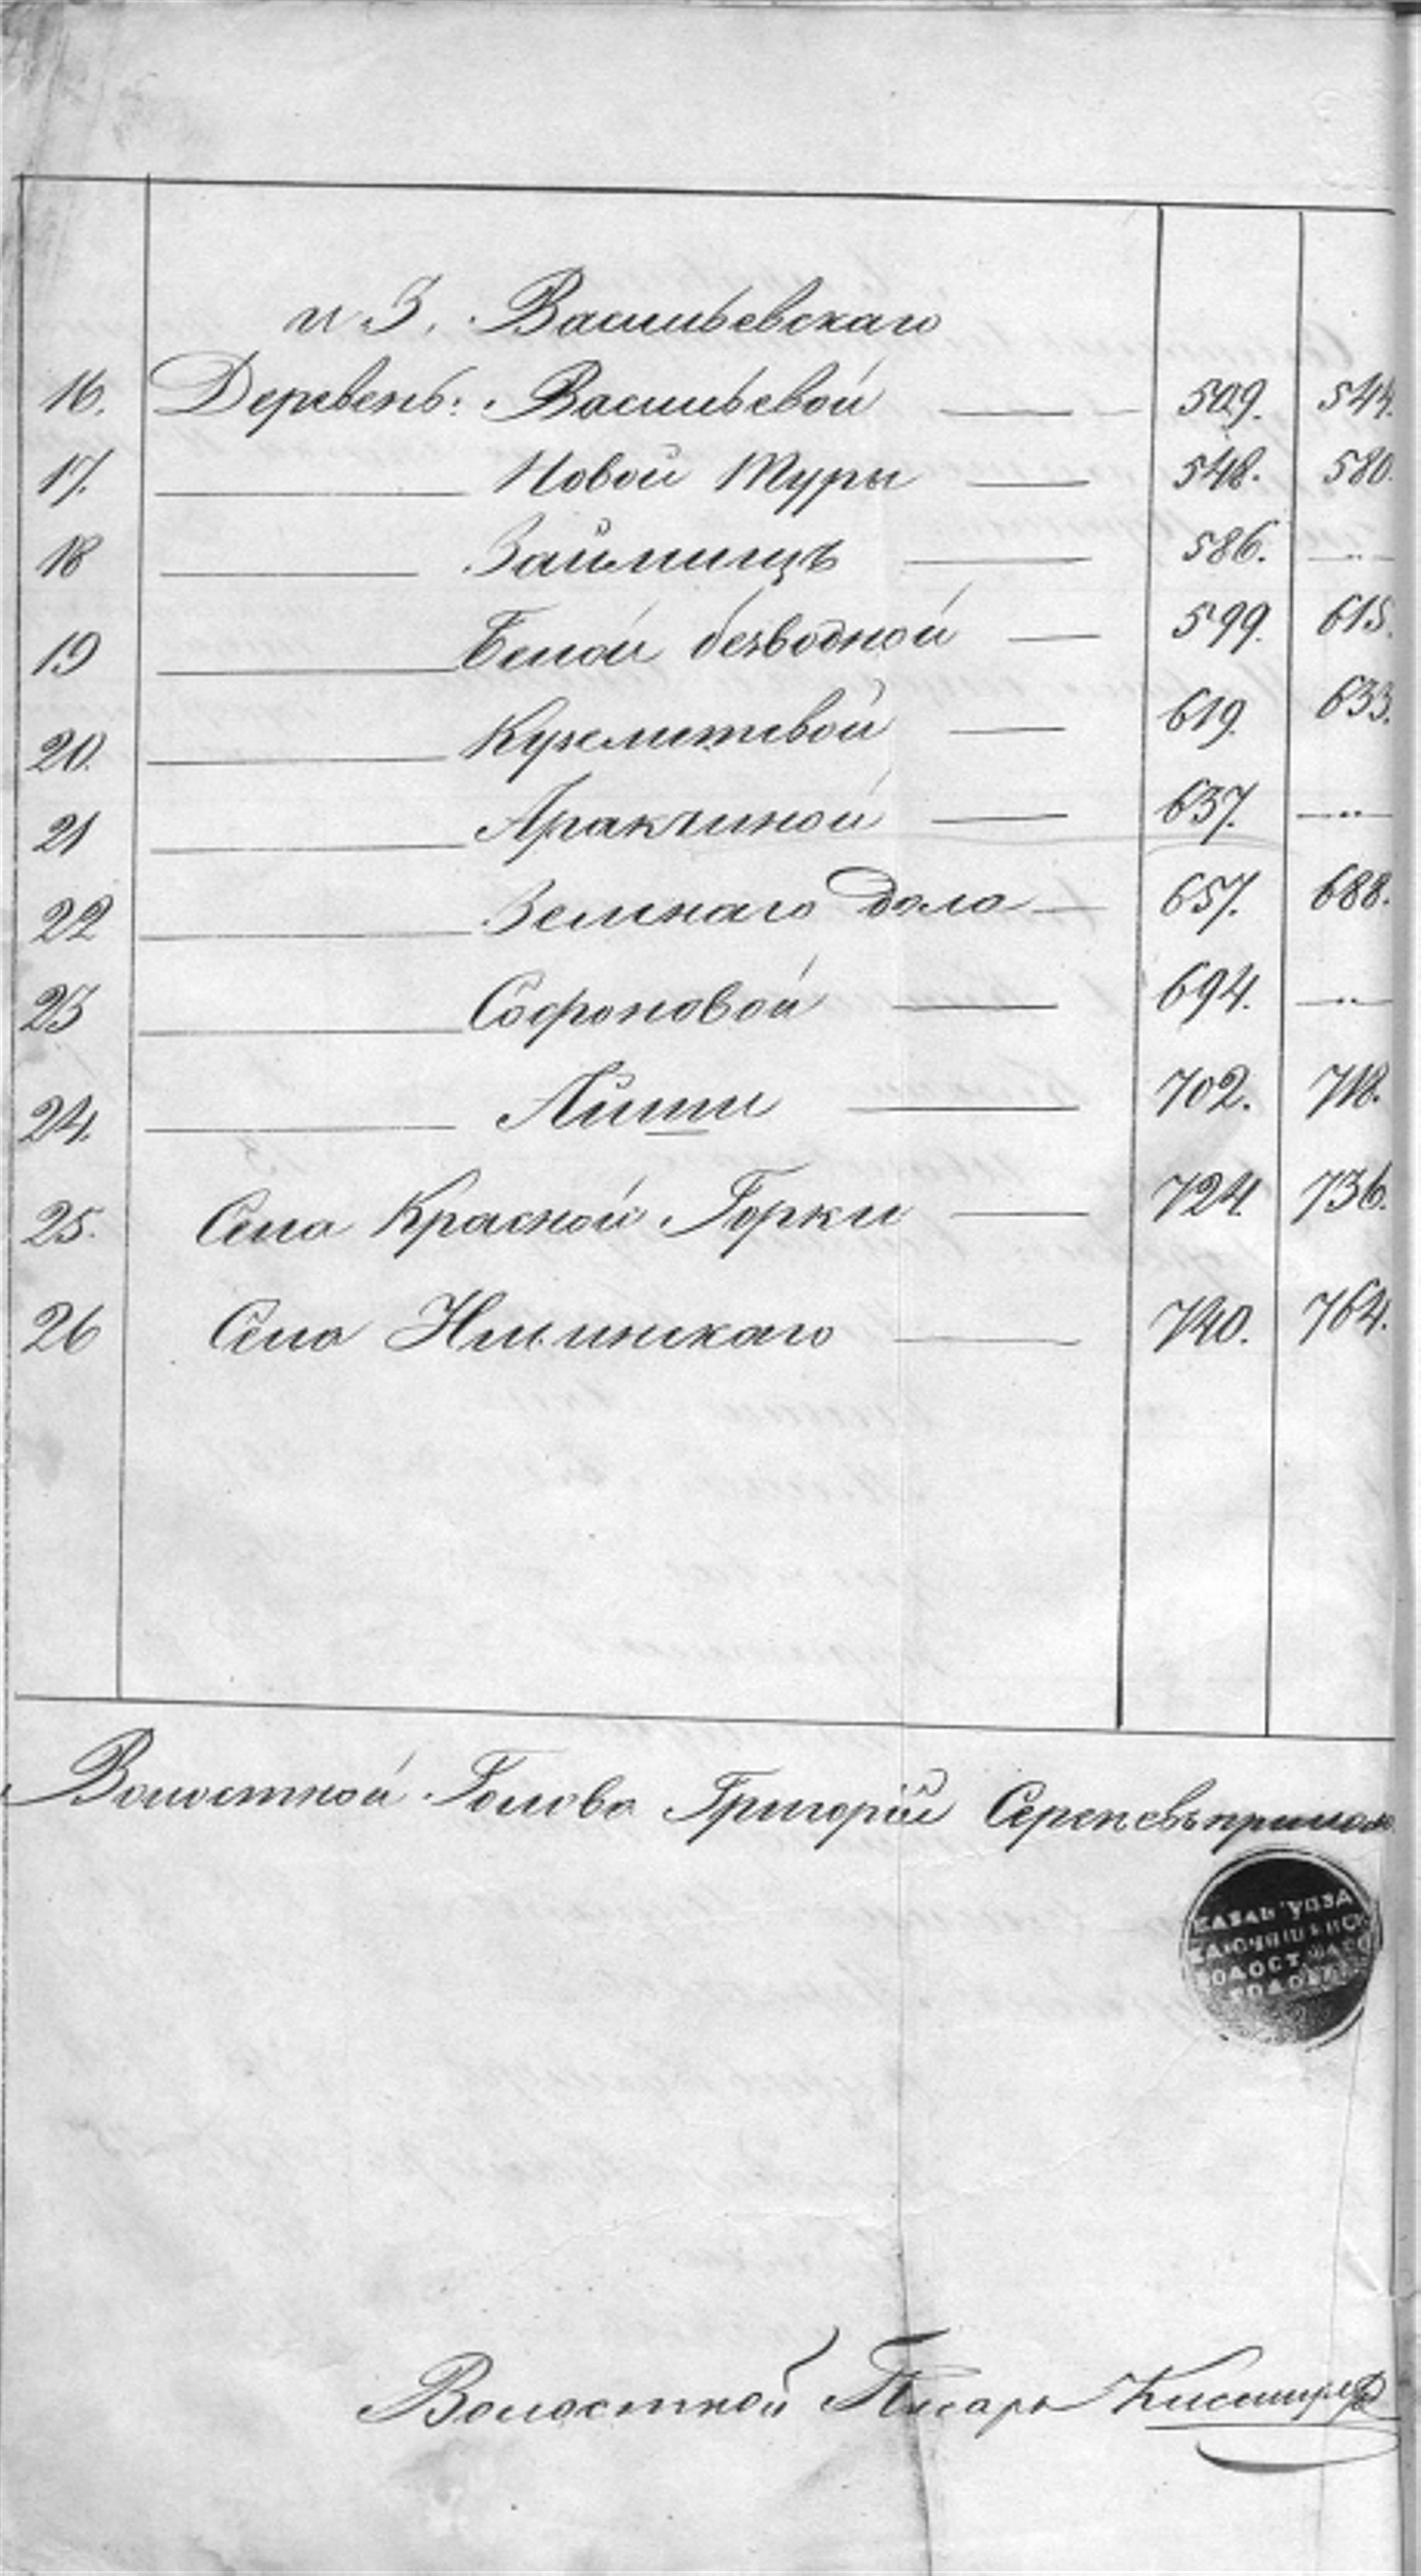 и 3. Васильевскаго
16. Деревень: Васильевой — 509. 544.
17. — Новой Туры — 548. 580.
18 — Займищъ — 586. — " —
19 — Белой безводной — 599. 615.
20. — Куземетевой — 619. 633.
21 — Аракчиной — 637. — " —
22 — Зеленаго дола — 657. 688.
23 — Софроновой — 694. — " —
24. — Айши — 702. 718.
25. Села Красной Горки — 724. 736.
26 Села Ильинскаго — 740. 764.
Волостной Голова Григорій
КАЗАН УѢЗД
КЛЮЧИЩИНСК
ВОЛОСТНАГО
ГОЛОВЫ
Волостной Писарь